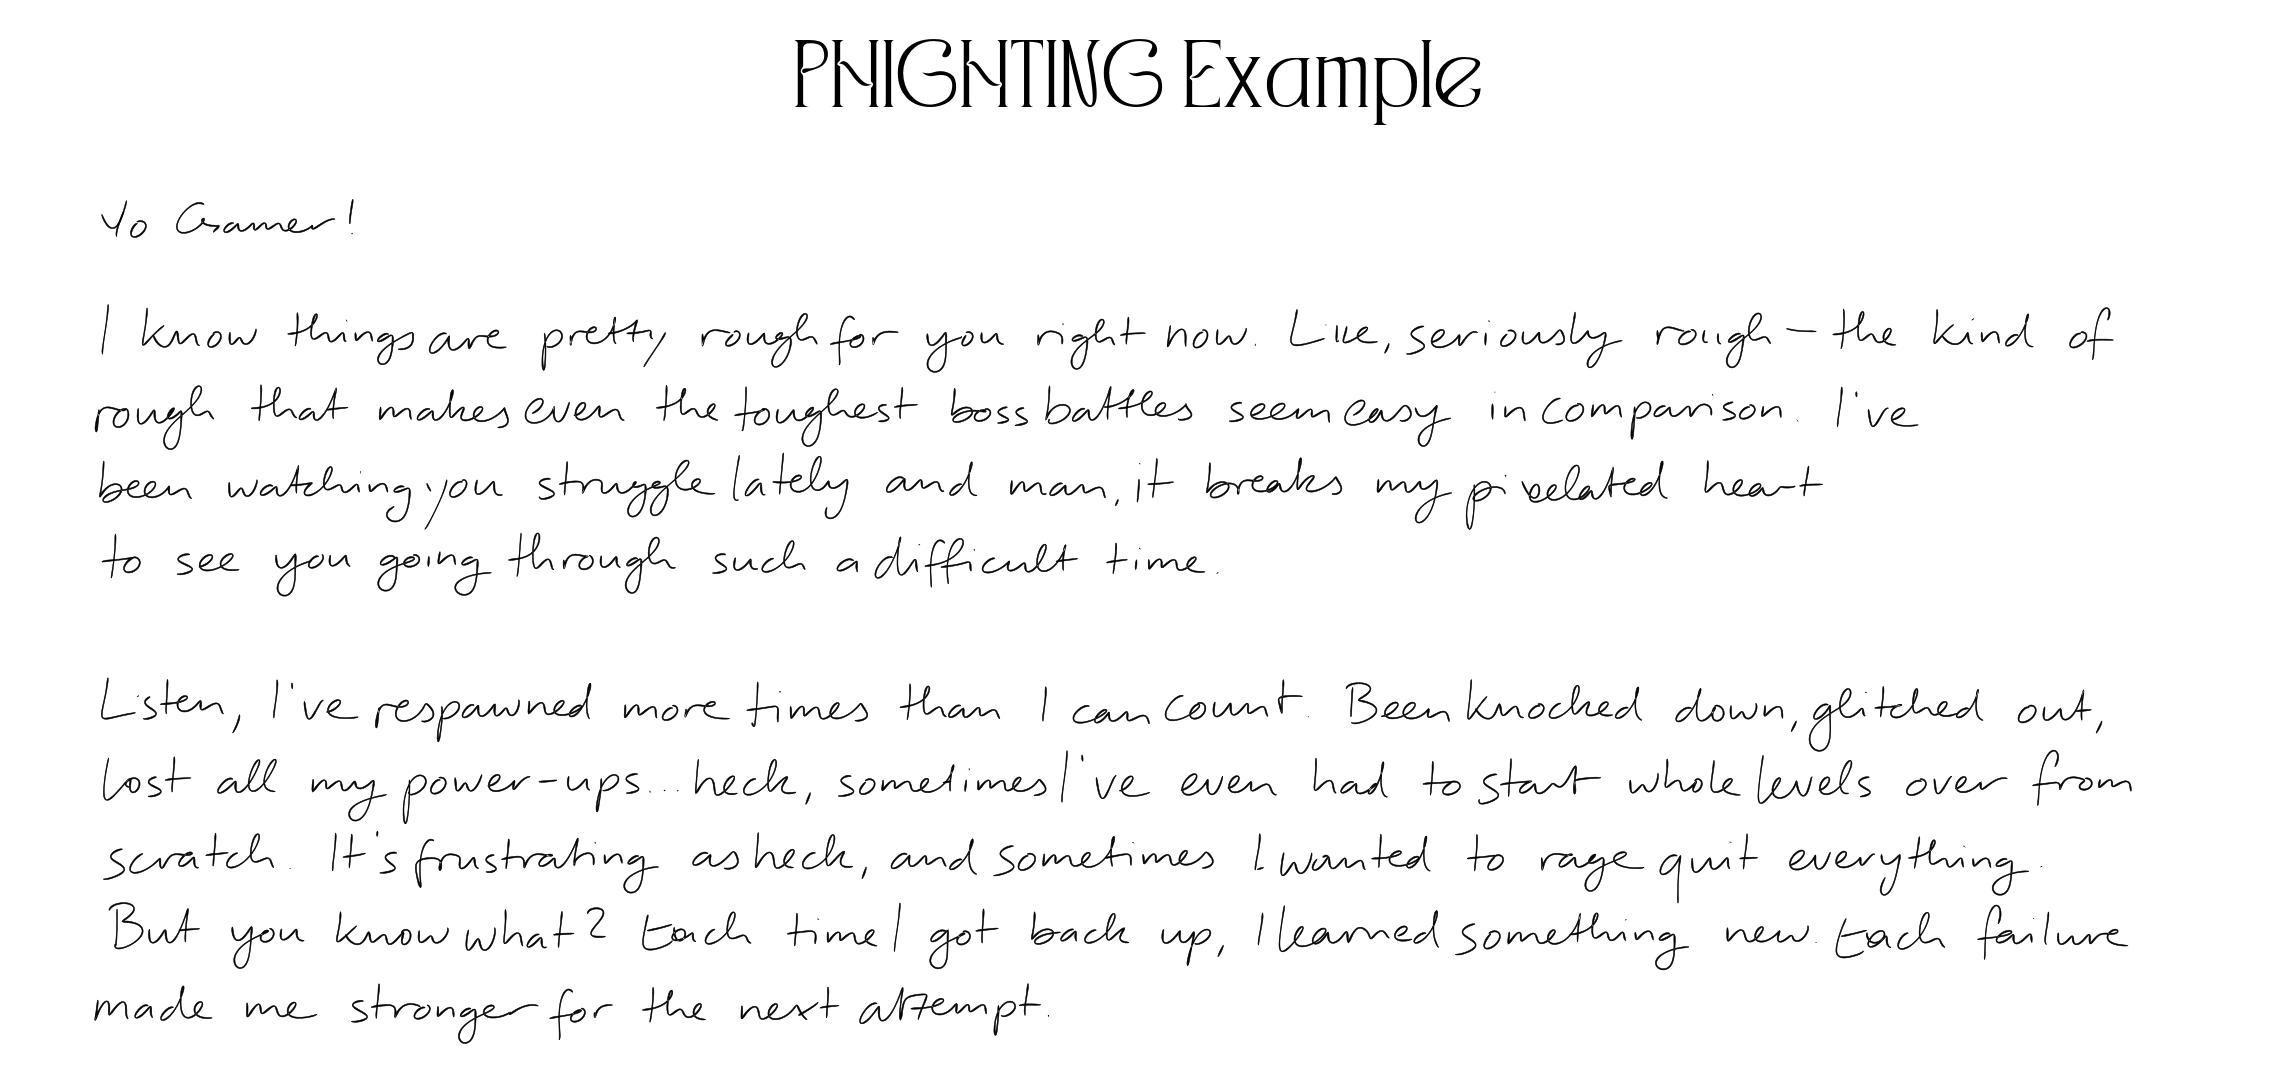 PHIGHTING Example
Yo Gamer!
I know things are pretty rough for you right now. Like, seriously rough – the kind of
rough that makes even the toughest boss battles seem easy in comparison. I've
been watching you struggle lately and man, it breaks my pixelated heart
to see you going through such a difficult time.
Listen, I've respawned more times than I can count. Been knocked down, glitched out,
lost all my power-ups... heck, sometimes I've even had to start whole levels over from
scratch. It's frustrating as heck, and sometimes I wanted to rage quit everything.
But you know what? Each time I got back up, I learned something new. Each failure
made me stronger for the next attempt.